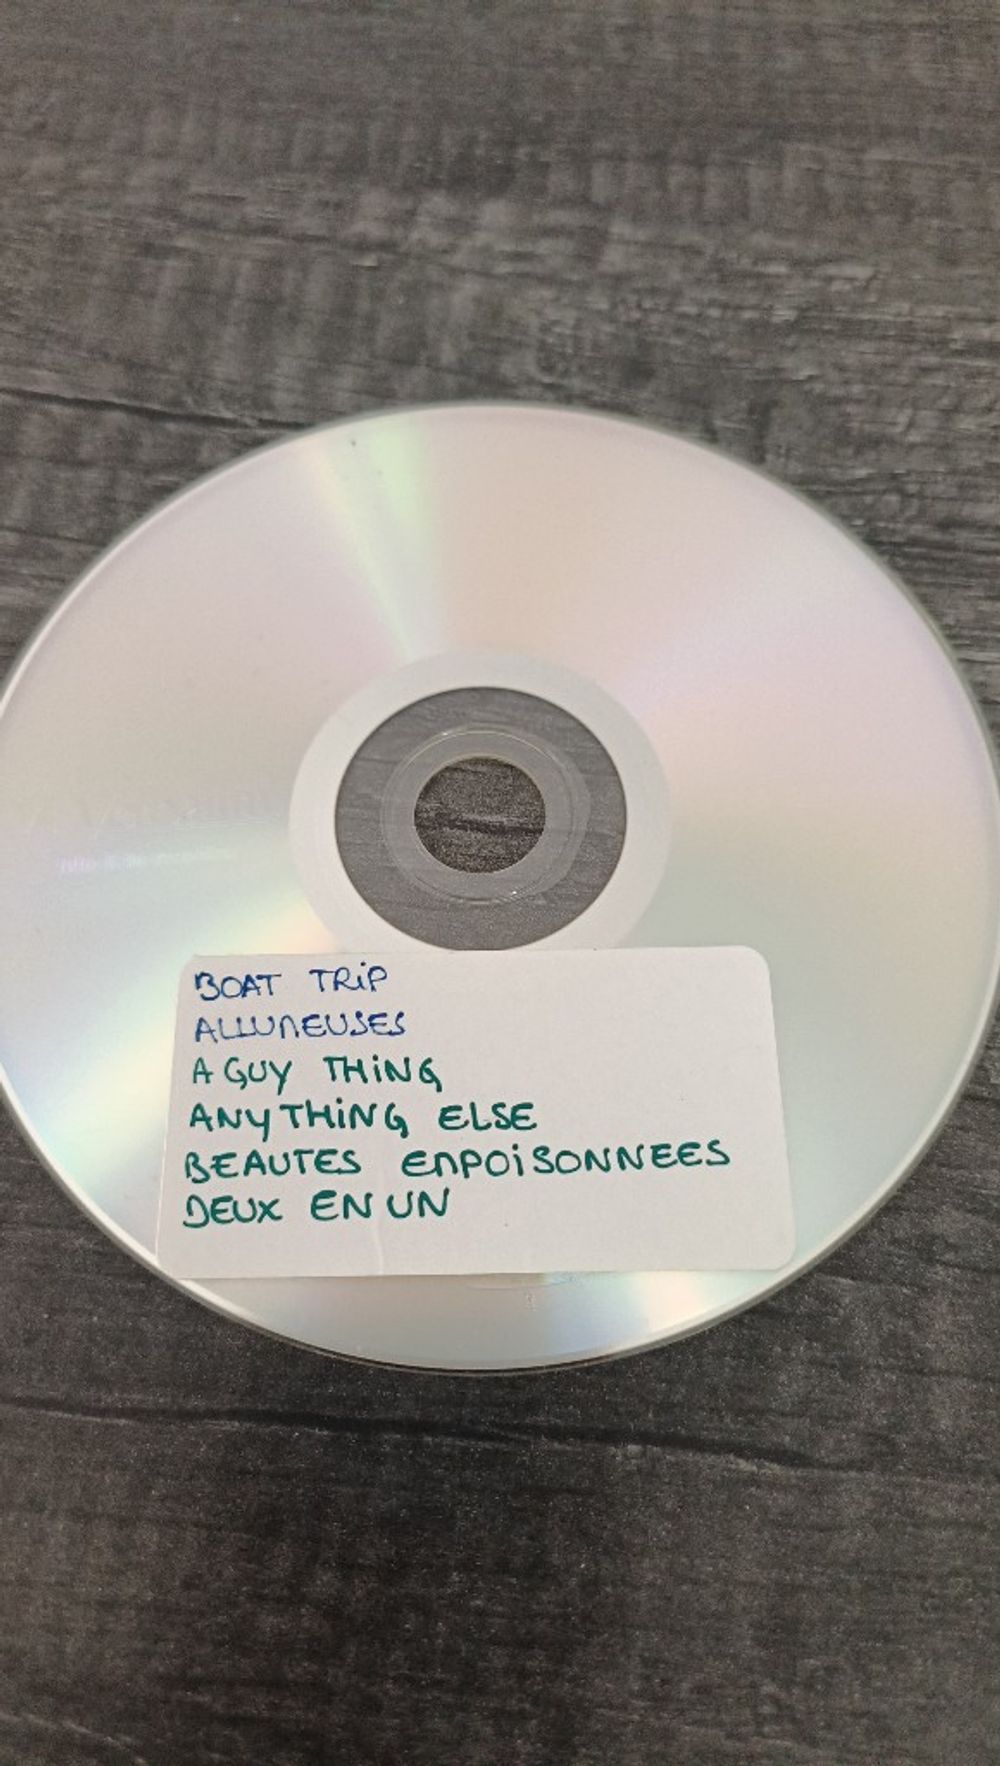 BOAT TRiP
ALLUMEUSES
A GUY THiNG
ANYTHiNG ELSE
BEAUTES EMPOiSONNEES
DEUX EN UN